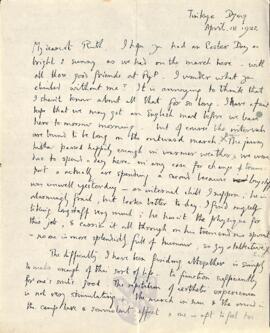 Tinkye Dzong
April. 18 1922
My dearest Ruth. I hope you had as Easter Day as
bright & sunny as we had on the march here – with
all those good friends at PyP. I wonder what you
climbed without me? It is annoying to think that
I shan't know about all that for so long. I have a faint
hope that we may get an English mail before we leave
here tomorrow morning but of course the intervals
are bound to be long on the outward march. The journey
hitherto passed happily enough in warmer weather; we were
due to spend a day here in any case for change of transport
& actually are spending a second because
was unwell yesterday – an internal chill I suppose, he is
alarmingly frail, but looks better to day. I find myself
liking very much; he hasn't the physique for
this job, & carries it all through on his tremendous spirit
– no one is more splendidly full of humour, so gay & talkative;
The difficulty I have been finding altogether is simply
to make enough of this sort of life to function sufficiently
for one's soul's good. The repetition of aesthetic experience
is not very stimulating. The march in turn & the wind in
the camp have a somnolent effect & one is apt to feel too